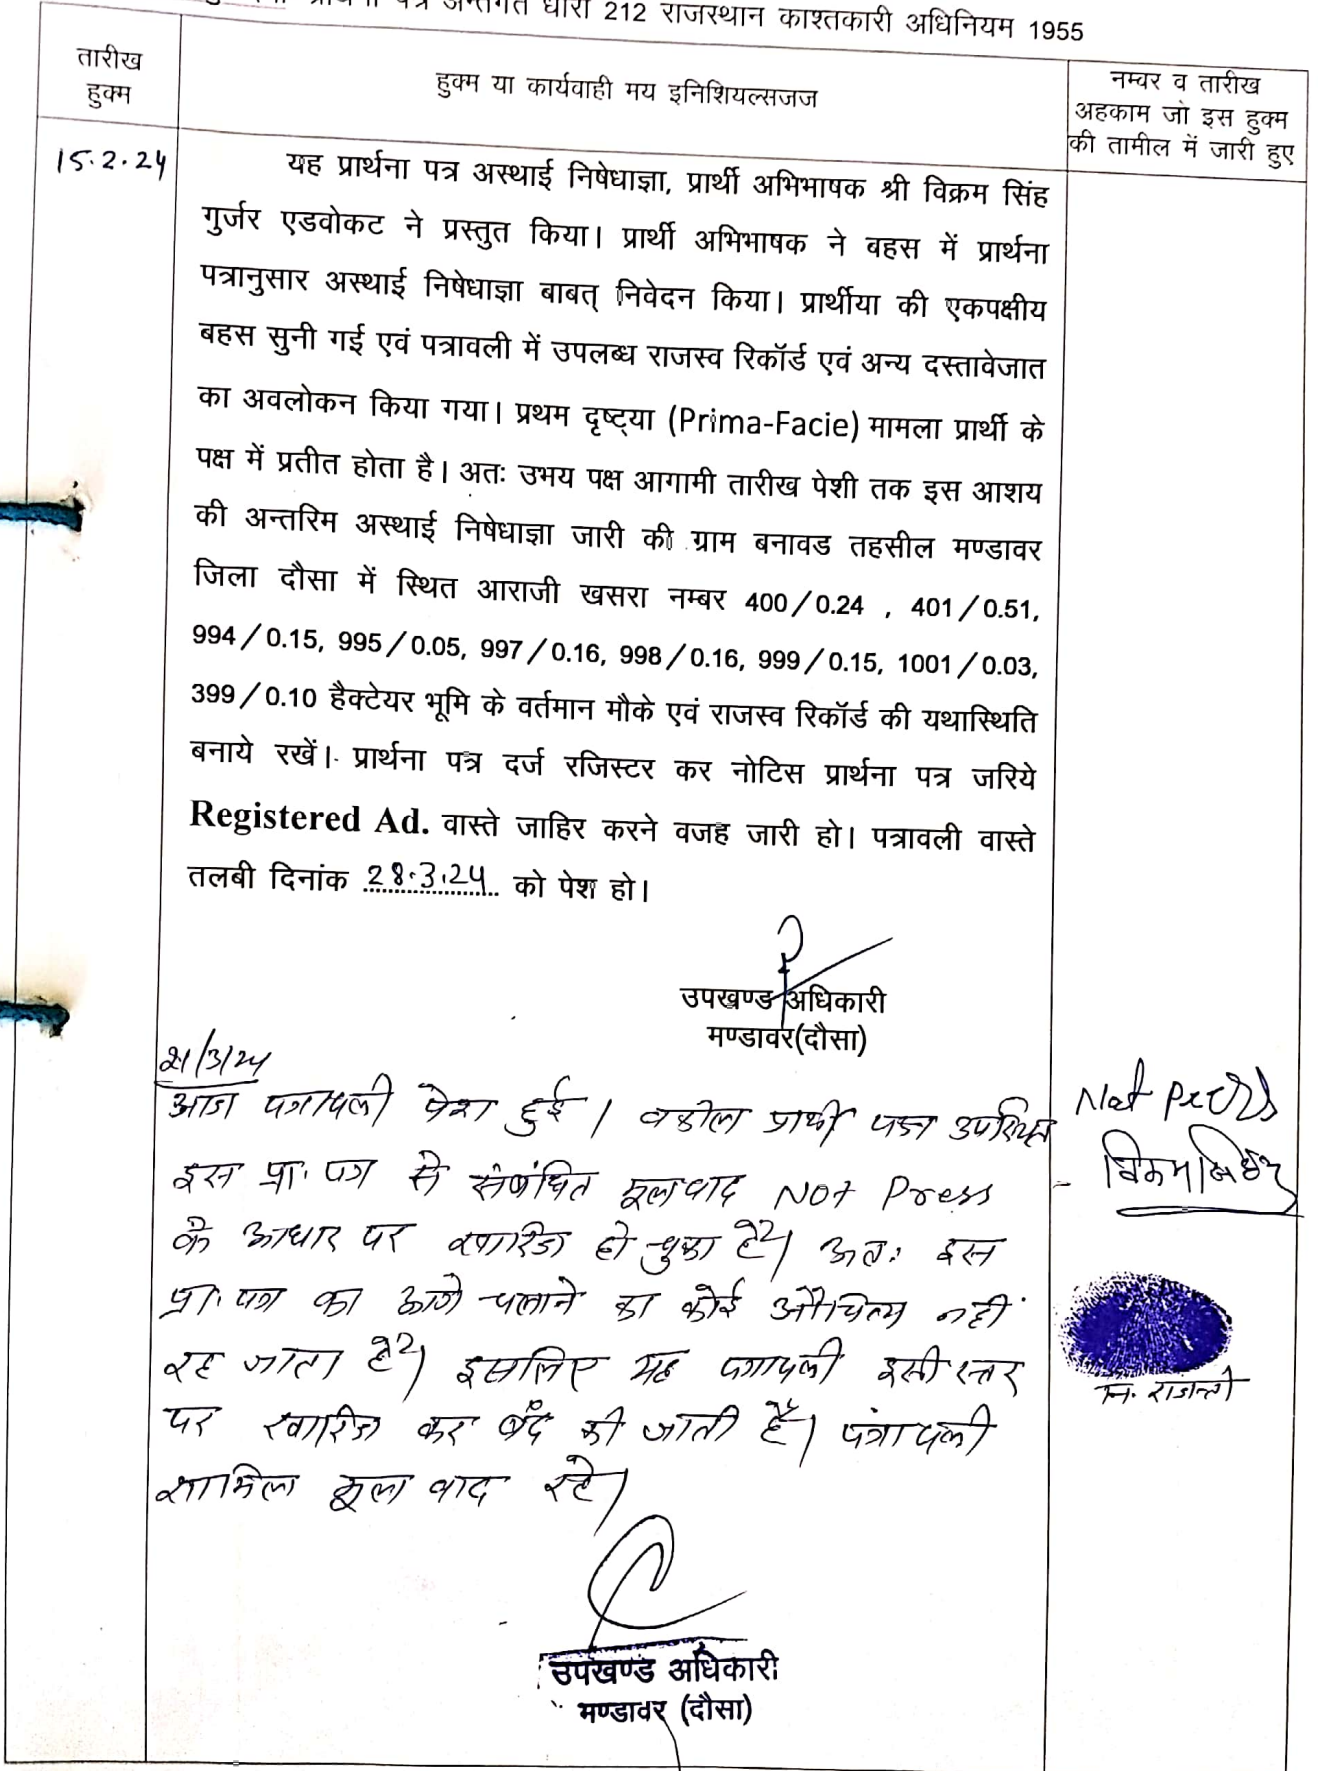 प्रार्थना पत्र अन्तर्गत धारा 212 राजस्थान काश्तकारी अधिनियम 1955
तारीख
हुक्म
हुक्म या कार्यवाही मय इनिशियल्सजज
नम्बर व तारीख
अहकाम जो इस हुक्म
की तामील में जारी हुए
15.2.24
यह प्रार्थना पत्र अस्थाई निषेधाज्ञा, प्रार्थी अभिभाषक श्री विक्रम सिंह
गुर्जर एडवोकट ने प्रस्तुत किया। प्रार्थी अभिभाषक ने बहस में प्रार्थना
पत्रानुसार अस्थाई निषेधाज्ञा बाबत् निवेदन किया। प्रार्थीया की एकपक्षीय
बहस सुनी गई एवं पत्रावली में उपलब्ध राजस्व रिकॉर्ड एवं अन्य दस्तावेजात
का अवलोकन किया गया। प्रथम दृष्ट्या (Prima-Facie) मामला प्रार्थी के
पक्ष में प्रतीत होता है। अतः उभय पक्ष आगामी तारीख पेशी तक इस आशय
की अन्तरिम अस्थाई निषेधाज्ञा जारी की ग्राम बनावड तहसील मण्डावर
जिला दौसा में स्थित आराजी खसरा नम्बर 400/0.24 , 401/0.51,
994/0.15, 995/0.05, 997/0.16, 998/0.16, 999/0.15, 1001/0.03,
399/0.10 हैक्टेयर भूमि के वर्तमान मौके एवं राजस्व रिकॉर्ड की यथास्थिति
बनाये रखें। प्रार्थना पत्र दर्ज रजिस्टर कर नोटिस प्रार्थना पत्र जरिये
Registered Ad. वास्ते जाहिर करने वजह जारी हो। पत्रावली वास्ते
तलबी दिनांक 28.3.24 को पेश हो।
उपखण्ड अधिकारी
मण्डावर(दौसा)
आज पत्रावली पेश हुई। वकील प्रार्थी पक्ष उपस्थित
इस प्रा. पत्र से संबंधित मूलवाद Not Press
के आधार पर खारिज हो चुका है। अतः इस
प्रा. पत्र का आगे चलाने का कोई औचित्य नहीं
रह जाता है। इसलिए यह पत्रावली इसी स्तर
पर खारिज कर बंद की जाती है। पत्रावली
शामिल मूल वाद रहे।
Not Press
विक्रमसिंह
नि. राजन्ती
उपखण्ड अधिकारी
मण्डावर (दौसा)